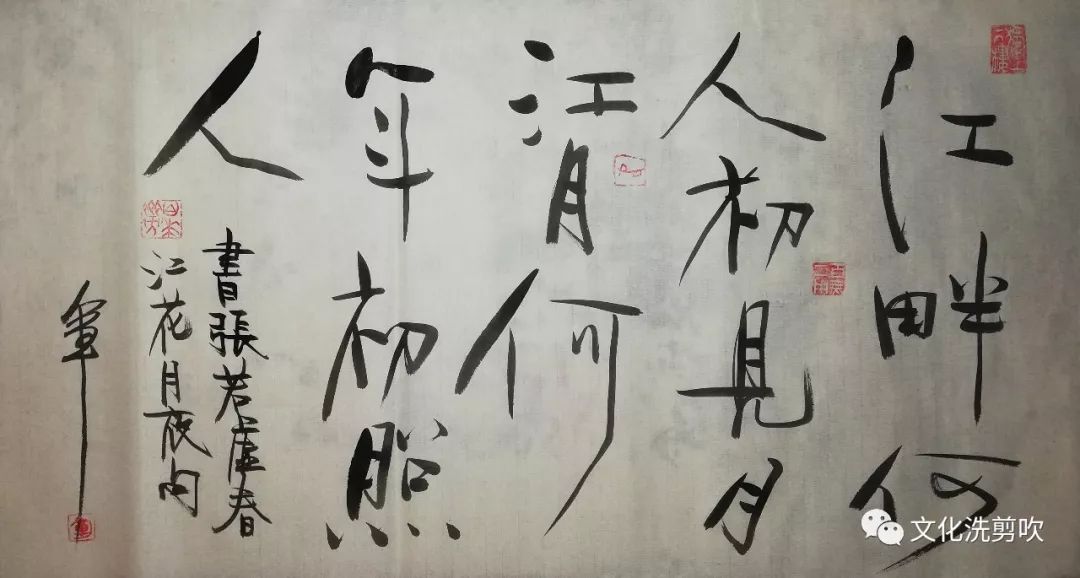 江畔何
人初見月
江月何
年初照
人
書張若虛春
江花月夜句
文化洗剪吹